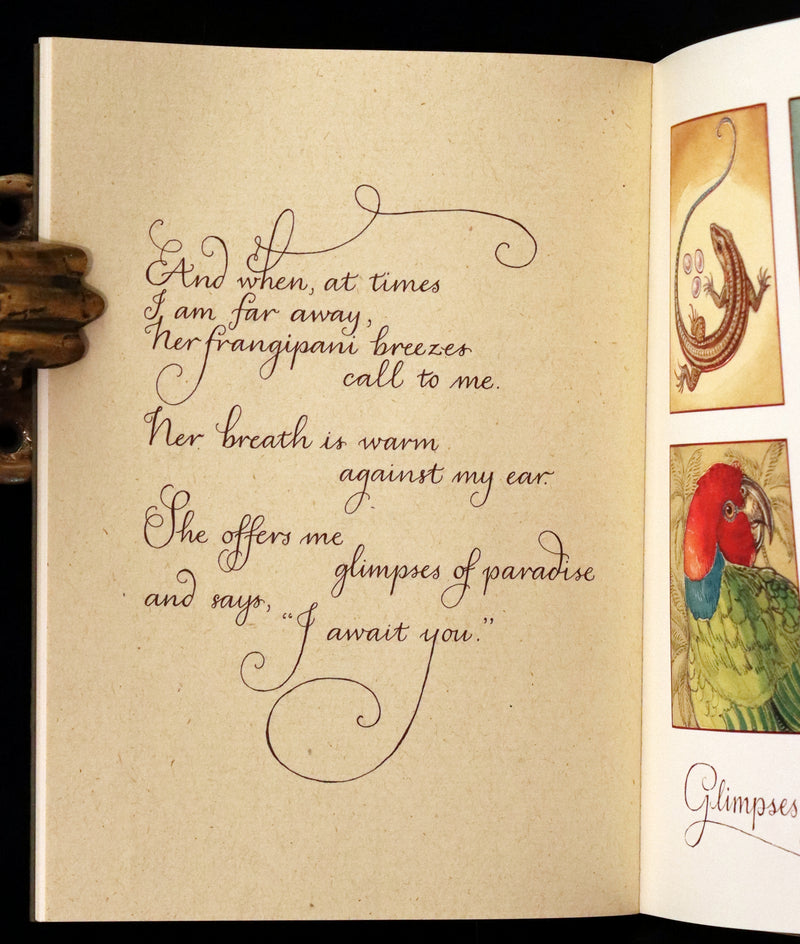 And when, at times
I am far away,
her frangipani breezes
call to me.
Her breath is warm
against my ear.
She offers me
glimpses of paradise
and says,
"I await you."
Glimpses